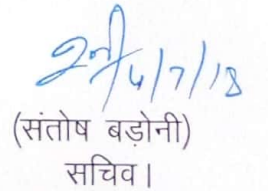 4/7/18
(संतोष बड़ोनी)
सचिव।